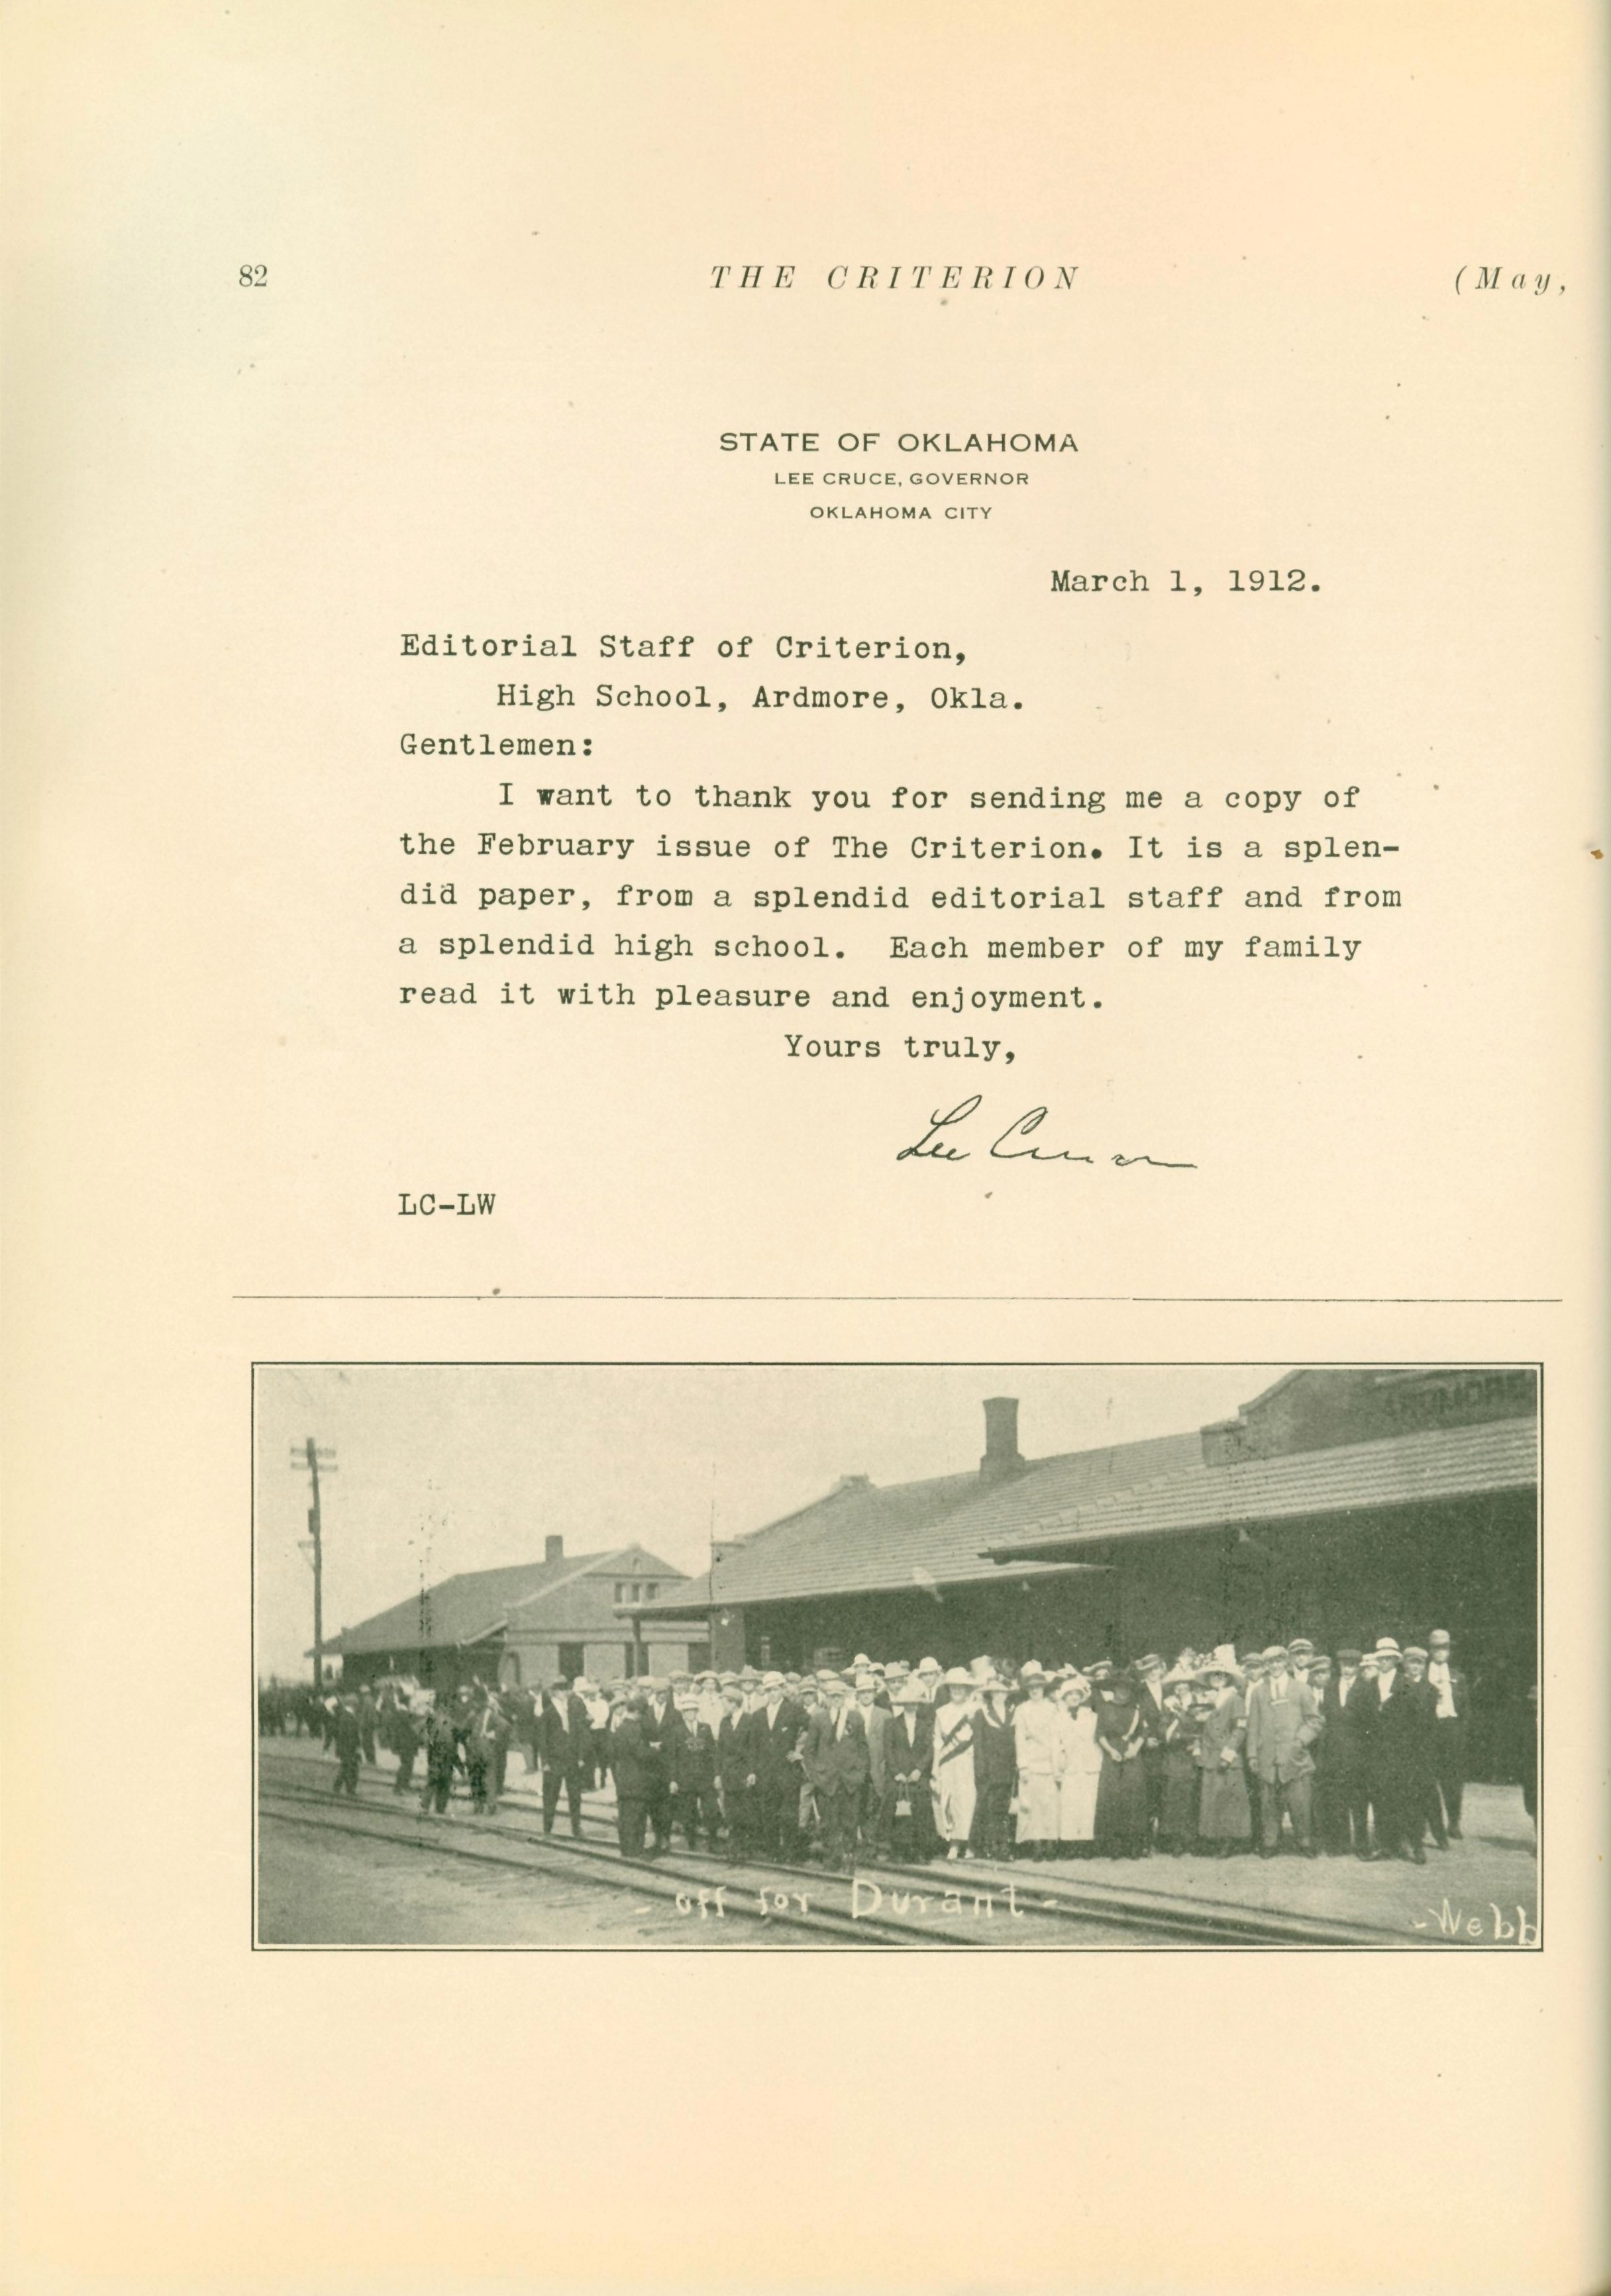 82 THE CRITERION (May,
STATE OF OKLAHOMA
LEE CRUCE, GOVERNOR
OKLAHOMA CITY
March 1, 1912.
Editorial Staff of Criterion,
High School, Ardmore, Okla.
Gentlemen:
I want to thank you for sending me a copy of
the February issue of The Criterion. It is a splen-
did paper, from a splendid editorial staff and from
a splendid high school. Each member of my family
read it with pleasure and enjoyment.
Yours truly,
Lee Cruce
LC-LW
ARDMORE
- off for Durant -
-Webb